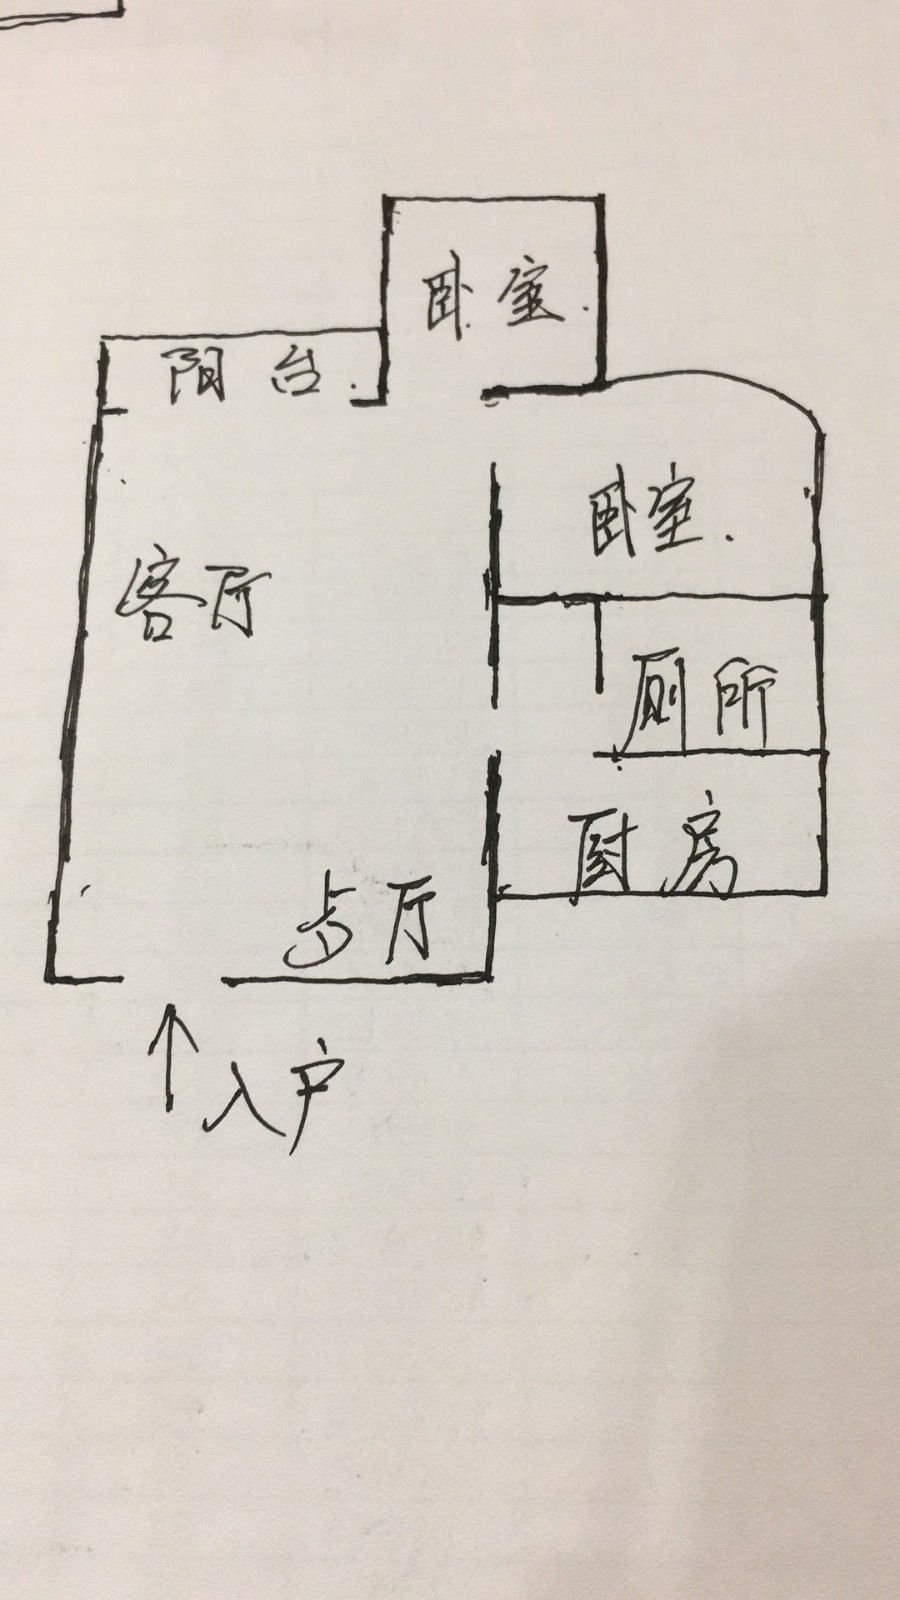 卧室
阳台
卧室
客厅
厕所
厨房
入户